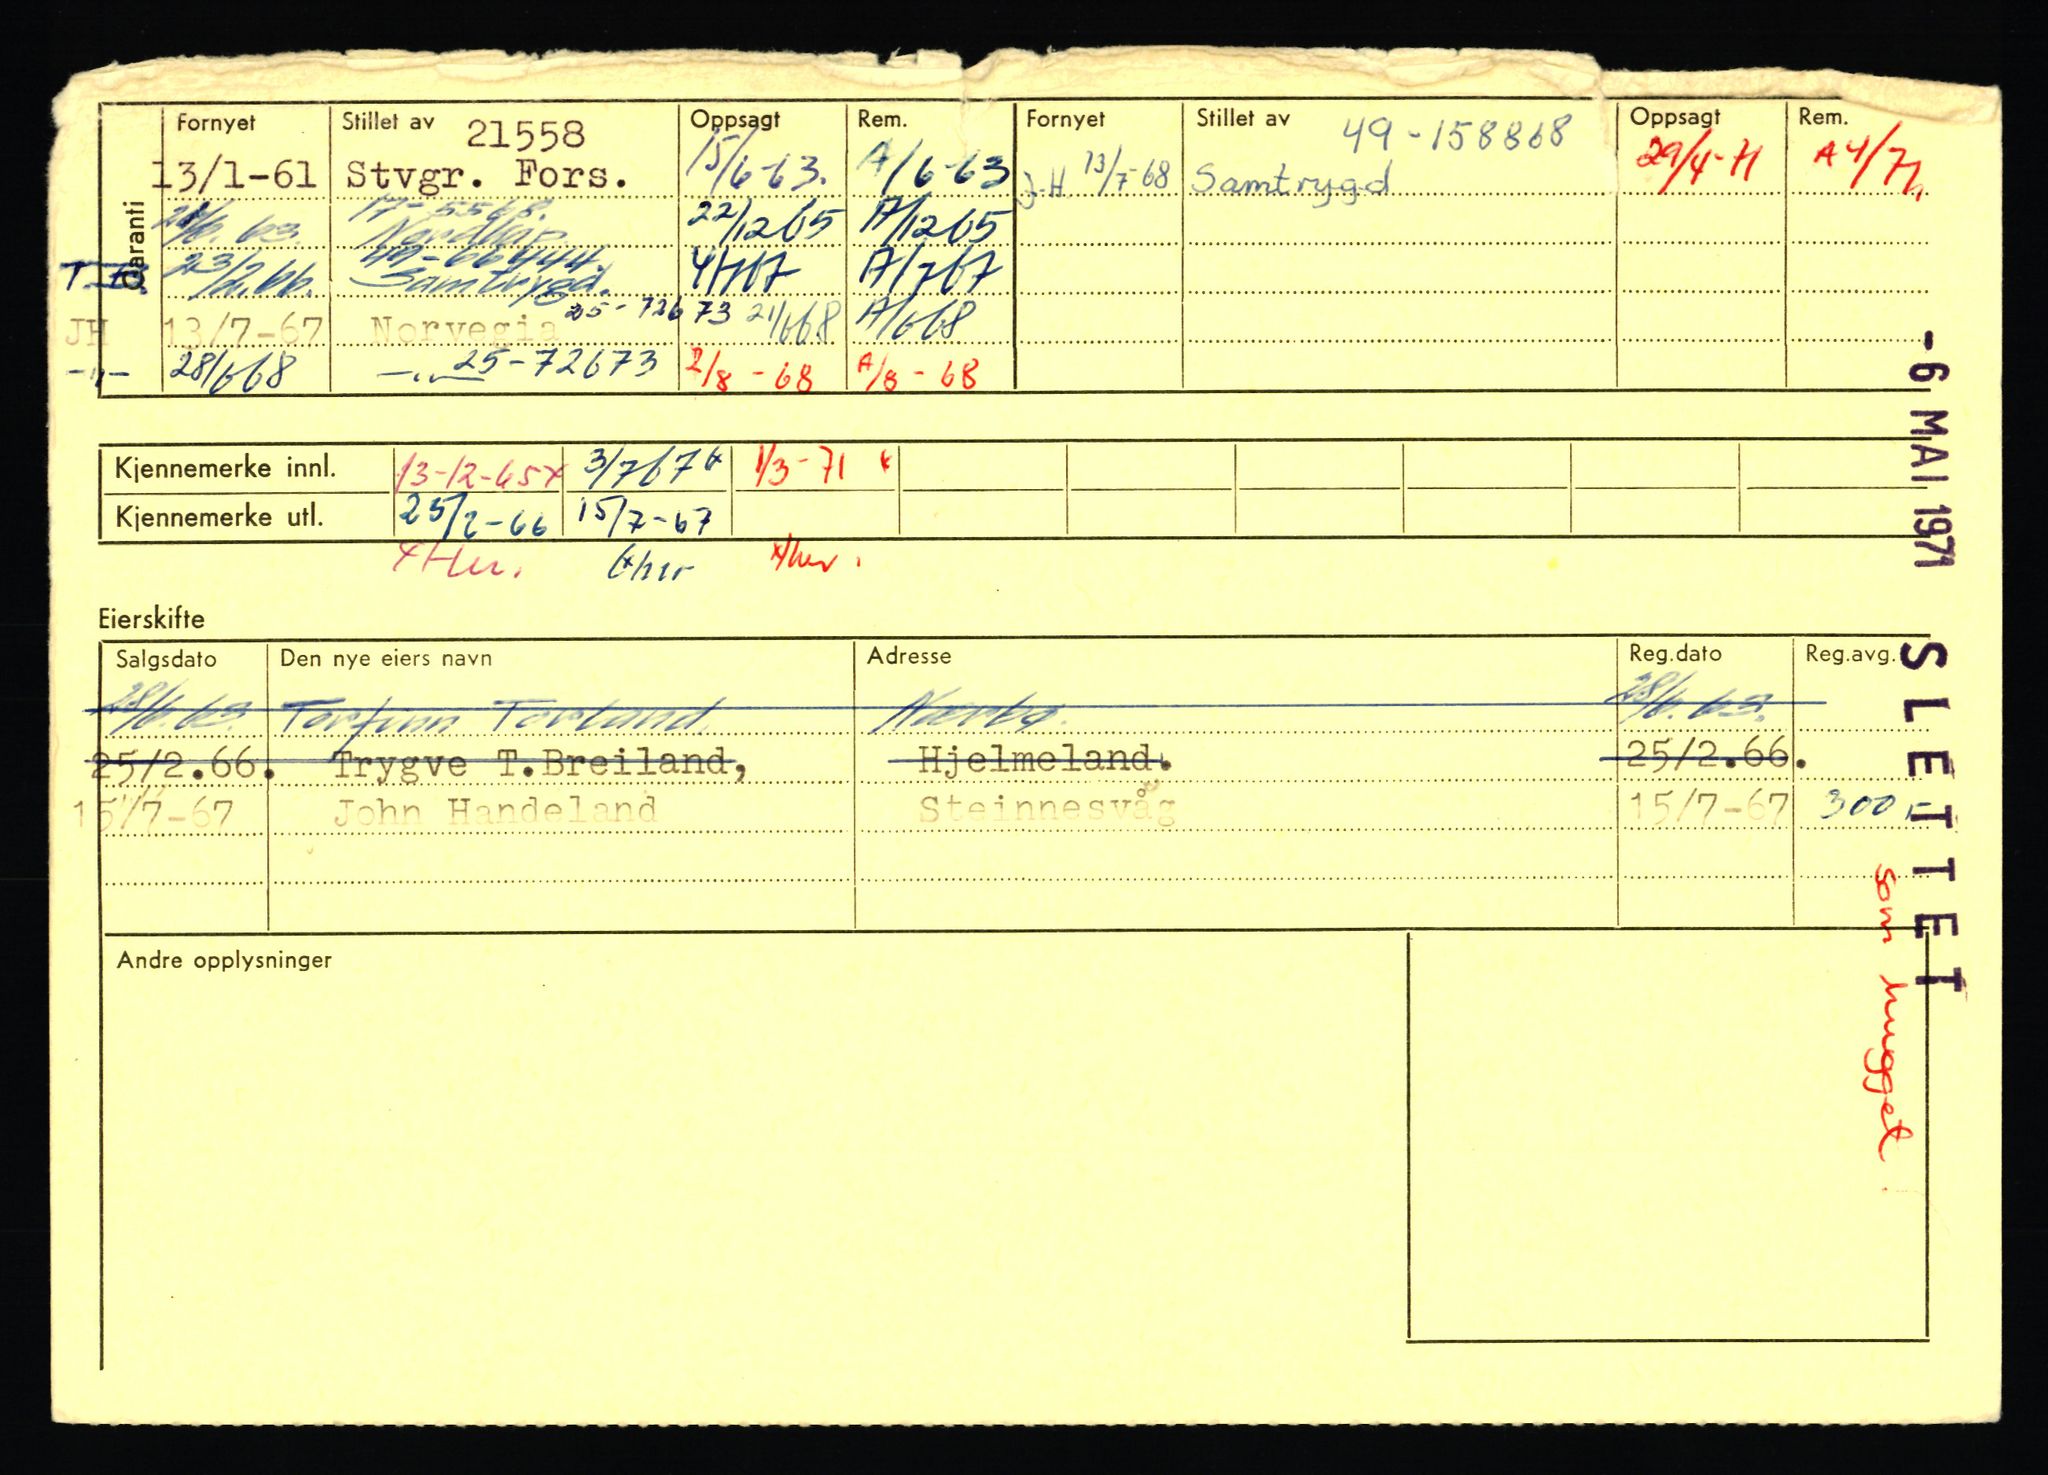 Garanti
Fornyet Stillet av 21558 Oppsagt Rem. Fornyet Stillet av 49-158868 Oppsagt Rem.
13/1-61 Stvgr. Fors. 15/6-63. A/6-63 J.H 13/7-68 Samtrygd 29/4-71 A 4/71
17-5568.
28/6.63. 22/12 65 A/12 65
49-66444
T.B. 23/2.66. Samtrygd. 4/7 67 A/7 67
JH 13/7-67 Norvegia 25-72673 21/6 68 A/6 68
-"- 28/6 68 -"- 25-72673 2/8-68 A/8-68
Kjennemerke innl. 13-12-65x 3/7 67x 1/3-71 x
Kjennemerke utl. 25/2-66 15/7-67
x Her. x her x her.
Eierskifte
Salgsdato Den nye eiers navn Adresse Reg.dato Reg.avg.
28/6.63. Torfinn Torland Nærbø. 28/6.63.
25/2.66. Trygve T.Breiland, Hjelmeland. 25/2.66.
15/7-67 John Handeland Steinnesvåg 15/7-67 300,-
Andre opplysninger
-6 MAI 1971 SLETTET
som hugget.